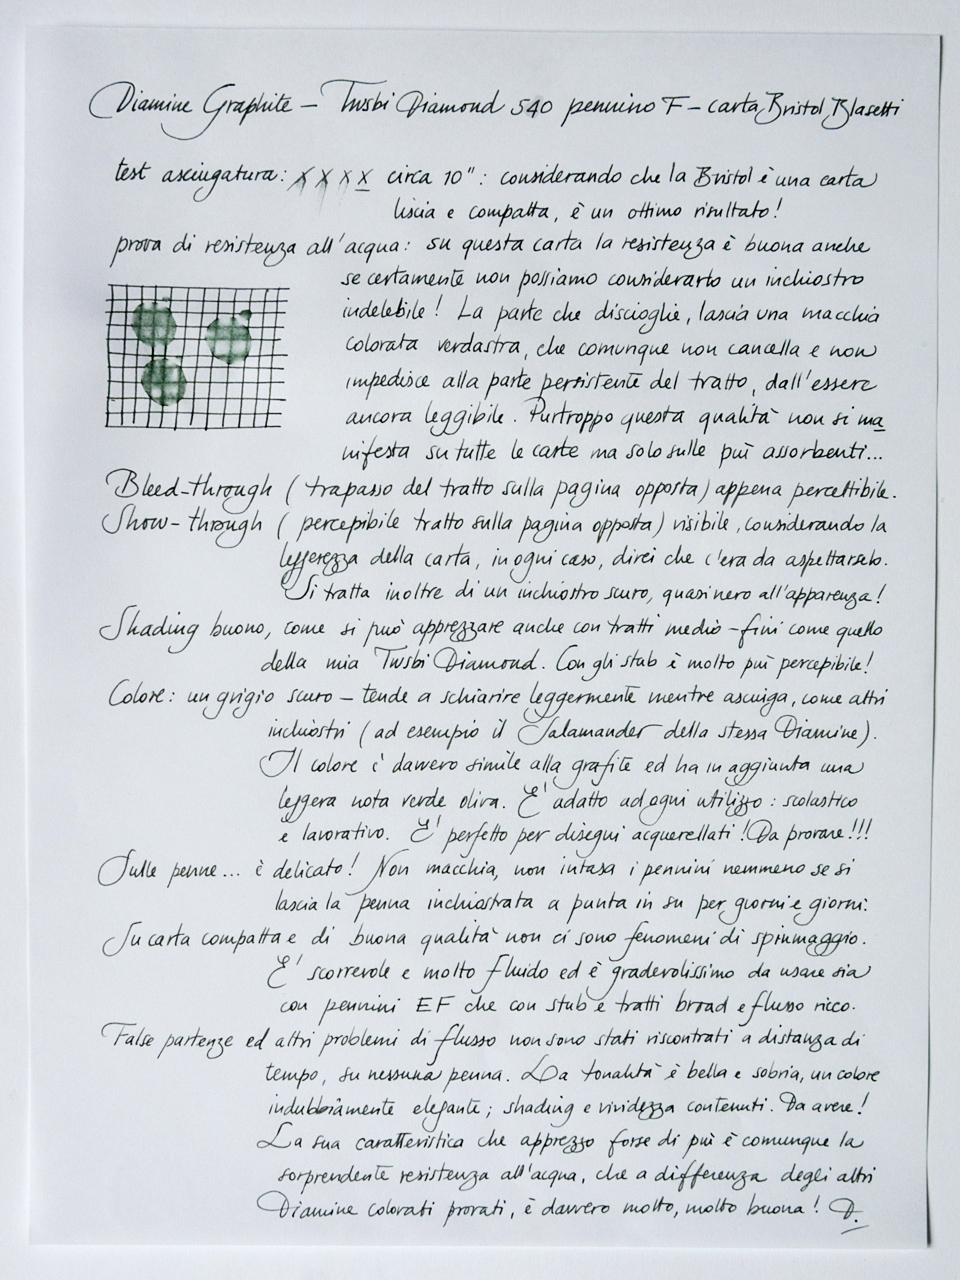 Diamine Graphite – Twsbi Diamond 540 pennino F – carta Bristol Blasetti
test asciugatura: X X X X circa 10": considerando che la Bristol è una carta
liscia e compatta, è un ottimo risultato!
prova di resistenza all'acqua: su questa carta la resistenza è buona anche
se certamente non possiamo considerarlo un inchiostro
indelebile! La parte che discioglie, lascia una macchia
colorata verdastra, che comunque non cancella e non
impedisce alla parte persistente del tratto, dall'essere
ancora leggibile. Purtroppo questa qualità non si ma
nifesta su tutte le carte ma solo sulle più assorbenti...
Bleed-through (trapasso del tratto sulla pagina opposta) appena percettibile.
Show-through (percepibile tratto sulla pagina opposta) visibile, considerando la
leggerezza della carta, in ogni caso, direi che c'era da aspettarselo.
Si tratta inoltre di un inchiostro scuro, quasi nero all'apparenza!
Shading buono, come si può apprezzare anche con tratti medio-fini come quello
della mia Twsbi Diamond. Con gli stub è molto più percepibile!
Colore: un grigio scuro – tende a schiarire leggermente mentre asciuga, come altri
inchiostri (ad esempio il Salamander della stessa Diamine).
Il colore è davvero simile alla grafite ed ha in aggiunta una
leggera nota verde oliva. E' adatto ad ogni utilizzo: scolastico
e lavorativo. E' perfetto per disegni acquerellati! Da provare!!!
Sulle penne... è delicato! Non macchia, non intasa i pennini nemmeno se si
lascia la penna inchiostrata a punta in su per giorni e giorni.
Su carta compatta e di buona qualità non ci sono fenomeni di spiumaggio.
E' scorrevole e molto fluido ed è gradevolissimo da usare sia
con pennini EF che con stub e tratti broad e flusso ricco.
False partenze ed altri problemi di flusso non sono stati riscontrati a distanza di
tempo, su nessuna penna. La tonalità è bella e sobria, un colore
indubbiamente elegante; shading e vividezza contenuti. Da avere!
La sua caratteristica che apprezzo forse di più è comunque la
sorprendente resistenza all'acqua, che a differenza degli altri
Diamine colorati provati, è davvero molto, molto buona! D.